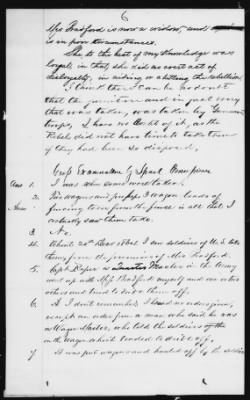 6
Mrs Bradford is now a widow, and
is in poor circumstances.
She to the best of my knowledge was
loyal in that, she did no overt act of
disloyalty, in aiding or abetting the rebellion
I stand the I can be no doubt
that the furniture and in fact every
that was taken, was taken by
troops, I have no doubt of it, as the
Rebels did not have time to take them
if they had been so disposed.
Cross Examination by Spcl
Ans 1. I was when some were taken.
2. Two wagons and perhaps 3 wagon loads of
fencing torn from the fence is all that I
actually saw them take.
3. No.
4. About 20th Decr 1862 I saw soldiers of U.S. take
them, from the premises of Mrs Bradford.
5. Capt Raper as Quarter Master in the Army
went up with Mrs Bradford myself and one or two
others and tried to drive them off.
6. A. I don't remember. I heard no orders given,
except an order from a man who said he was
a Wagon Master, who told the soldiers of the
the wagon which loaded to drive off.
7. It was put wagons and hauled off by the soldiers